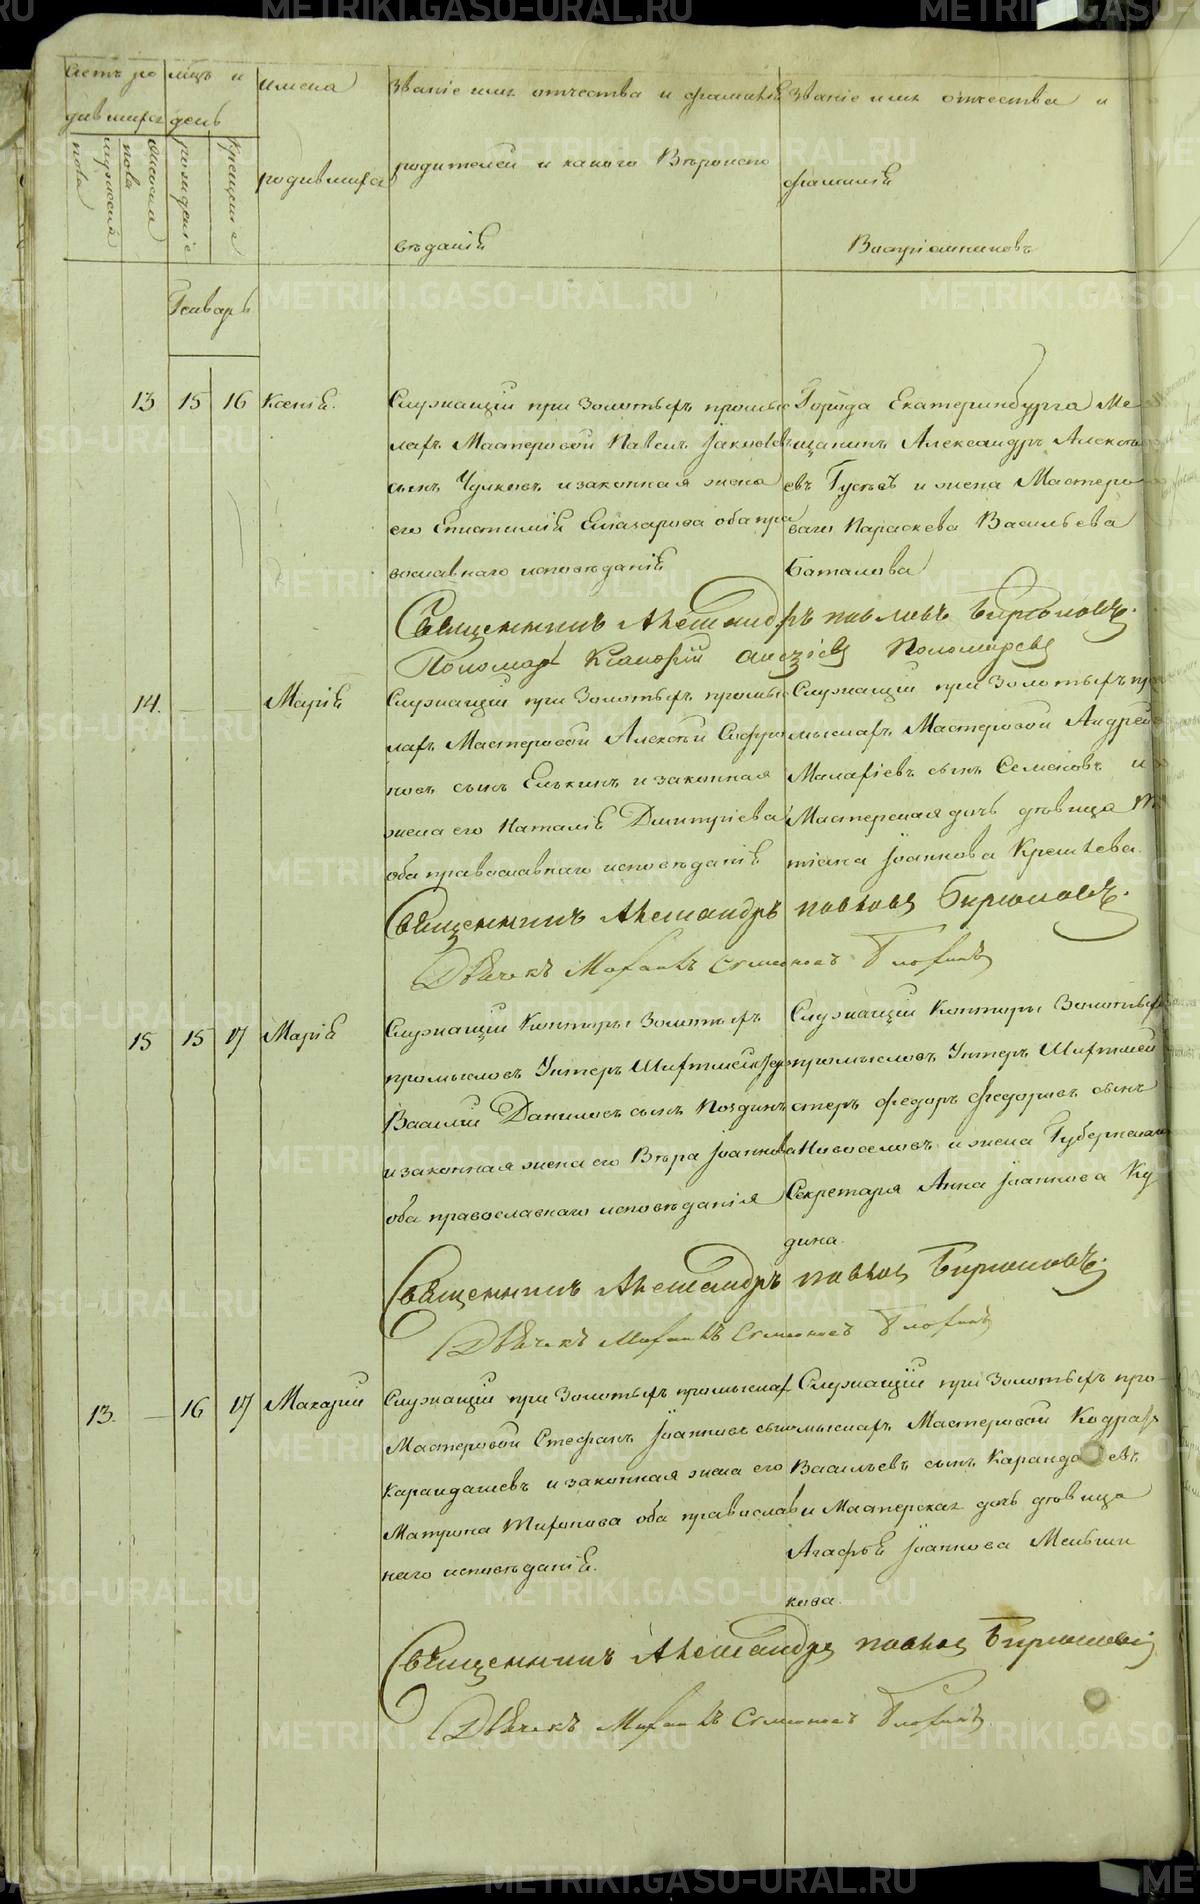 Счетъ ро
дившихся
мужеска
пола
женска
пола
мѣсяцъ и
день
рожденія
крещенія
имена
родившихся
Званіе имя отчества и фамилія
родителей и какого Вѣроиспо
вѣданія
Званіе имя отчества и
фамилія
Воспріемниковъ
Генварь
13 15 16 Ксенія.
Служащій при Золотыхъ промыс
лахъ Мастеровой Павелъ Іаковлевъ
сынъ Чулковъ и законная жена
его Епистимія Елеазарова оба пра
вославнаго исповѣданія
Города Екатеринбурга Ме
щанинъ Александръ Алексѣ
евъ Гусевъ и жена Мастеро
ваго Параскева Васильева
Баталова
Священникъ Александръ павловъ Бирюковъ.
Пономарь Пономаревъ
14. Марія
Служащій при Золотыхъ промыс
лахъ Мастеровой Алексѣй Софро
новъ сынъ Елькинъ и законная
жена его Наталія Димитріева
оба православнаго исповѣданія
Служащій при Золотыхъ про
мыслахъ Мастеровой Андрей
Малафіевъ сынъ Семеновъ и
Мастерская дочь дѣвица Т
тіана Іоаннова Крешкева.
Священникъ Александръ павловъ Бирюковъ.
Дьячекъ Семеновъ
15 15 17 Марія
Служащій Конторы Золотыхъ
промысловъ Унтеръ Шифтмейстеръ
Василій Даниловъ сынъ Поздинъ
и законная жена его Вѣра Іоаннова
оба православнаго исповѣданія
Служащій Конторы Золотыхъ
промысловъ Унтеръ Шифтмей
стеръ Федоръ Федоровъ сынъ
Новоселовъ и жена Губернскаго
Секретаря Анна Іоаннова Ку
дина.
Священникъ Александръ павловъ Бирюковъ.
Дьячекъ Семеновъ
13. 16 17 Макарій
Служащій при Золотыхъ промыслах
Мастеровой Стефанъ Іоанновъ сынъ
Карандашевъ и законная жена его
Матрона Тифонова оба православ
наго исповѣданія.
Служащій при Золотыхъ про-
мыслахъ Мастеровой Кодратъ
Васильевъ сынъ Карандашевъ
и Мастерская дочь дѣвица
Агафія Іоаннова Меньши
кова.
Священникъ Александръ павловъ Бирюковъ
Дьячекъ Семеновъ
METRIKI.GASO-URAL.RU